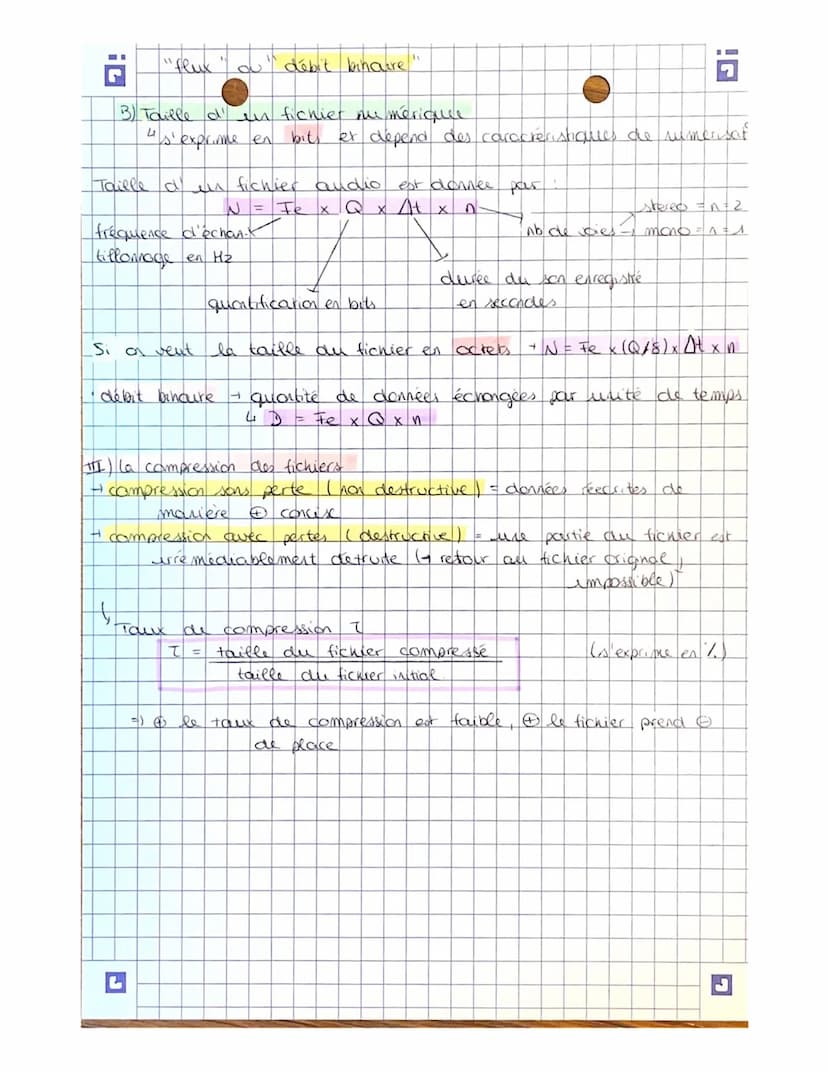 "flux" ou "débit binaire"
3) Taille d'un fichier numérique
↳ s'exprime en bits et dépend des caractéristiques de numérisat
Taille d'un fichier audio est donnée par :
N = Fe x Q x Δt x n
stereo = n = 2
fréquence d'échan-
nb de voies → mono = n = 1
tillonnage en Hz
durée du son enregistré
en secondes
quantification en bits
Si on veut la taille du fichier en octets → N = Fe x (Q/8) x Δt x n
· débit binaire → quantité de données échangées par unité de temps
↳ D = Fe x Q x n
III) La compression des fichiers
→ compression sans perte (non destructive) = données réecrites de
manière ⊕ concise
→ compression avec pertes (destructive) = une partie du fichier est
irrémédiablement détruite (→ retour au fichier original
impossible)
↳ Taux de compression τ
τ = taille du fichier compressé
(s'exprime en %)
taille du fichier initial
=) ⊕ le taux de compression est faible, ⊕ le fichier prend ⊖
de place